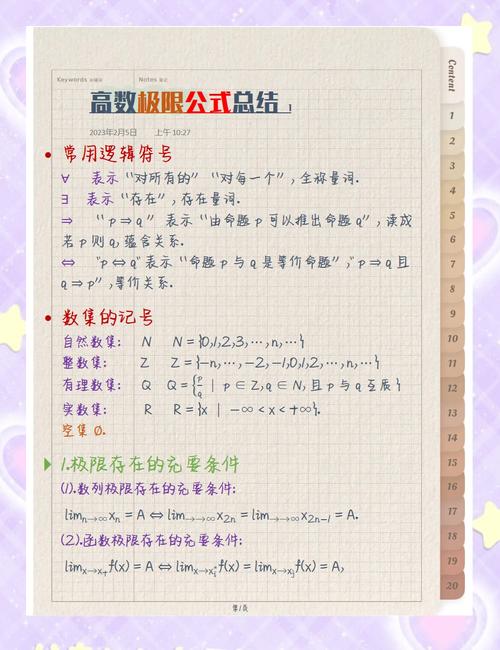 Keywords 关键词 Notes 笔记
高数极限公式总结 1
2023年2月5日 上午 10:27
• 常用逻辑符号
∀ 表示“对所有的”“对每一个”,全称量词.
∃ 表示“存在”,存在量词.
⇒ “p⇒q” 表示“由命题 p 可以推出命题 q”,读成
若 p 则 q,蕴含关系.
⇔ “p⇔q”表示“命题 p 与 q 是等价命题”,“p⇒q 且
q⇒p”,等价关系.
• 数集的记号
自然数集: N N={0,1,2,3,⋯,n,⋯}
整数集: Z Z={−n,⋯,−2,−1,0,1,2,⋯,n,⋯}
有理数集: Q Q={p/q | p∈Z,q∈N,且 p 与 q 互质}
实数集: R R={x | −∞<x<+∞}.
空集 Ø.
1.极限存在的充要条件
(1).数列极限存在的充要条件:
limₙ→∞xₙ = A ⇔ lim→∞x₂ₙ = limₙ→∞x₂ₙ₋₁ = A.
(2).函数极限存在的充要条件:
第1页
Content
1
2
3
4
5
6
7
8
9
10
11
12
13
14
15
16
17
18
19
20